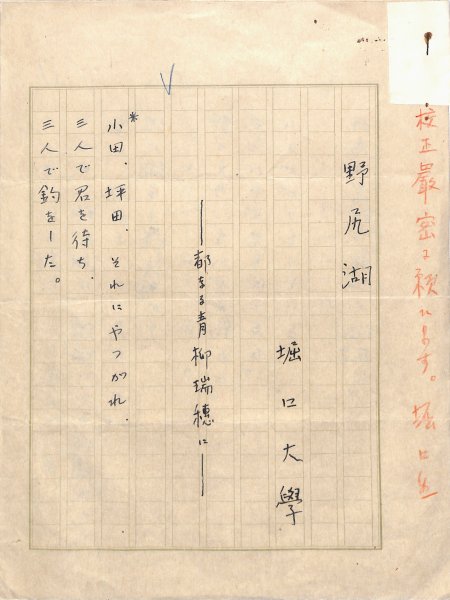 校正嚴密に願ひます。堀口生
野尻湖
堀口大學
——都なる青柳瑞穗に——
※
小田、坪田、それにやつがれ、
三人で君を待ち、
三人で釣をした。